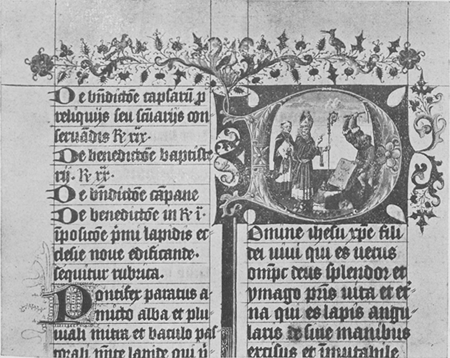 De bn̄dictōe capsarū p̄
reliquijs seu sc̄uarijs con
seruādis R xix.
De benedictōe baptiste
rij. R. xx.
De bn̄dictōe cāpane
De benedictōe in R i.
īposicōe p̄mi lapidis ec
clesie noue edificande.
sequitur rubrica.
Pontifex paratus a
micto alba et plu
uiali mitra et baculo pas
torali lapide qui
Domine ihesu xp̄e fili
dei viui qui es verus
om̄pc deus splendor et
ymago p̄ris vita et et
na qui es lapis angu
laris de sine manibus
excisus et īmutabile